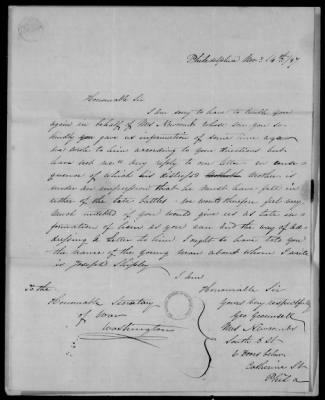 Philadelphia Nov. 14th/47
Honourable Sir
I am sorry to have to trouble you
again in behalf of Mrs Newcomb whose son you so
kindly you gave us information of some time ago
we wrote to him according to your directions but
have not recd any reply to our letter in conse
quence of which his distressd Mother is
under an impression that he must have fell in
either of the late battles - we would therefore feel very
much indebted if you would give us as late in=
formation of him as you can and the way of ad=
dressing a Letter to him I ought to have told you
the name of the young man about whom I write
is Joseph Shipley
I am
To the
Honourable Sir
Honourable Secretary
yours very respectfully
of War
Geo
Washington
Mrs Newcombs
South 6 St
6 doors below
Catherine St
Phila